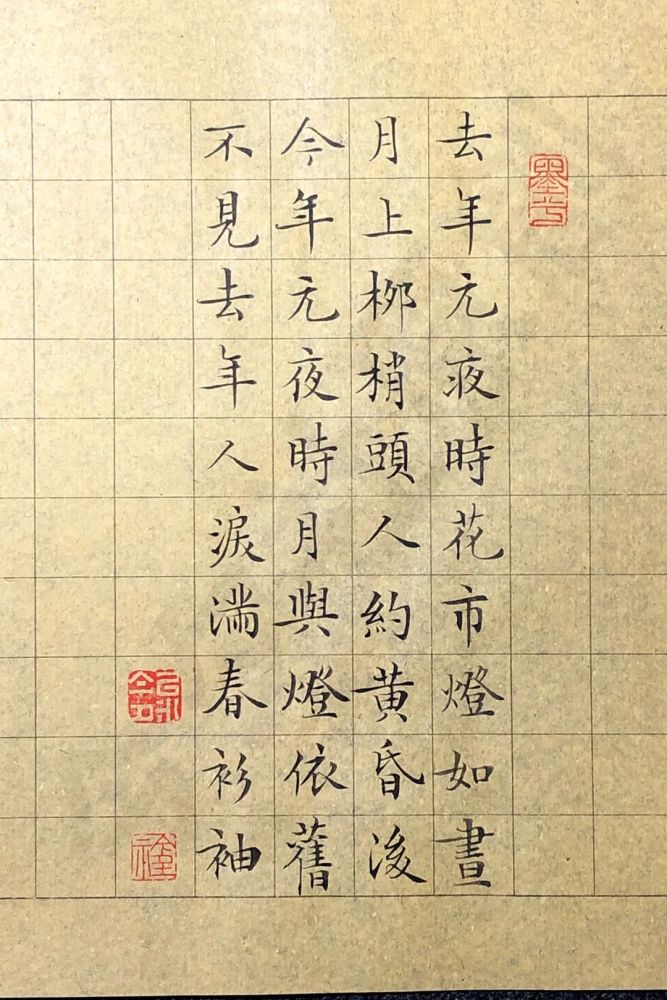 去年元夜時花市燈如晝
月上栁梢頭人約黃昏後
今年元夜時月與燈依舊
不見去年人淚滿春衫袖